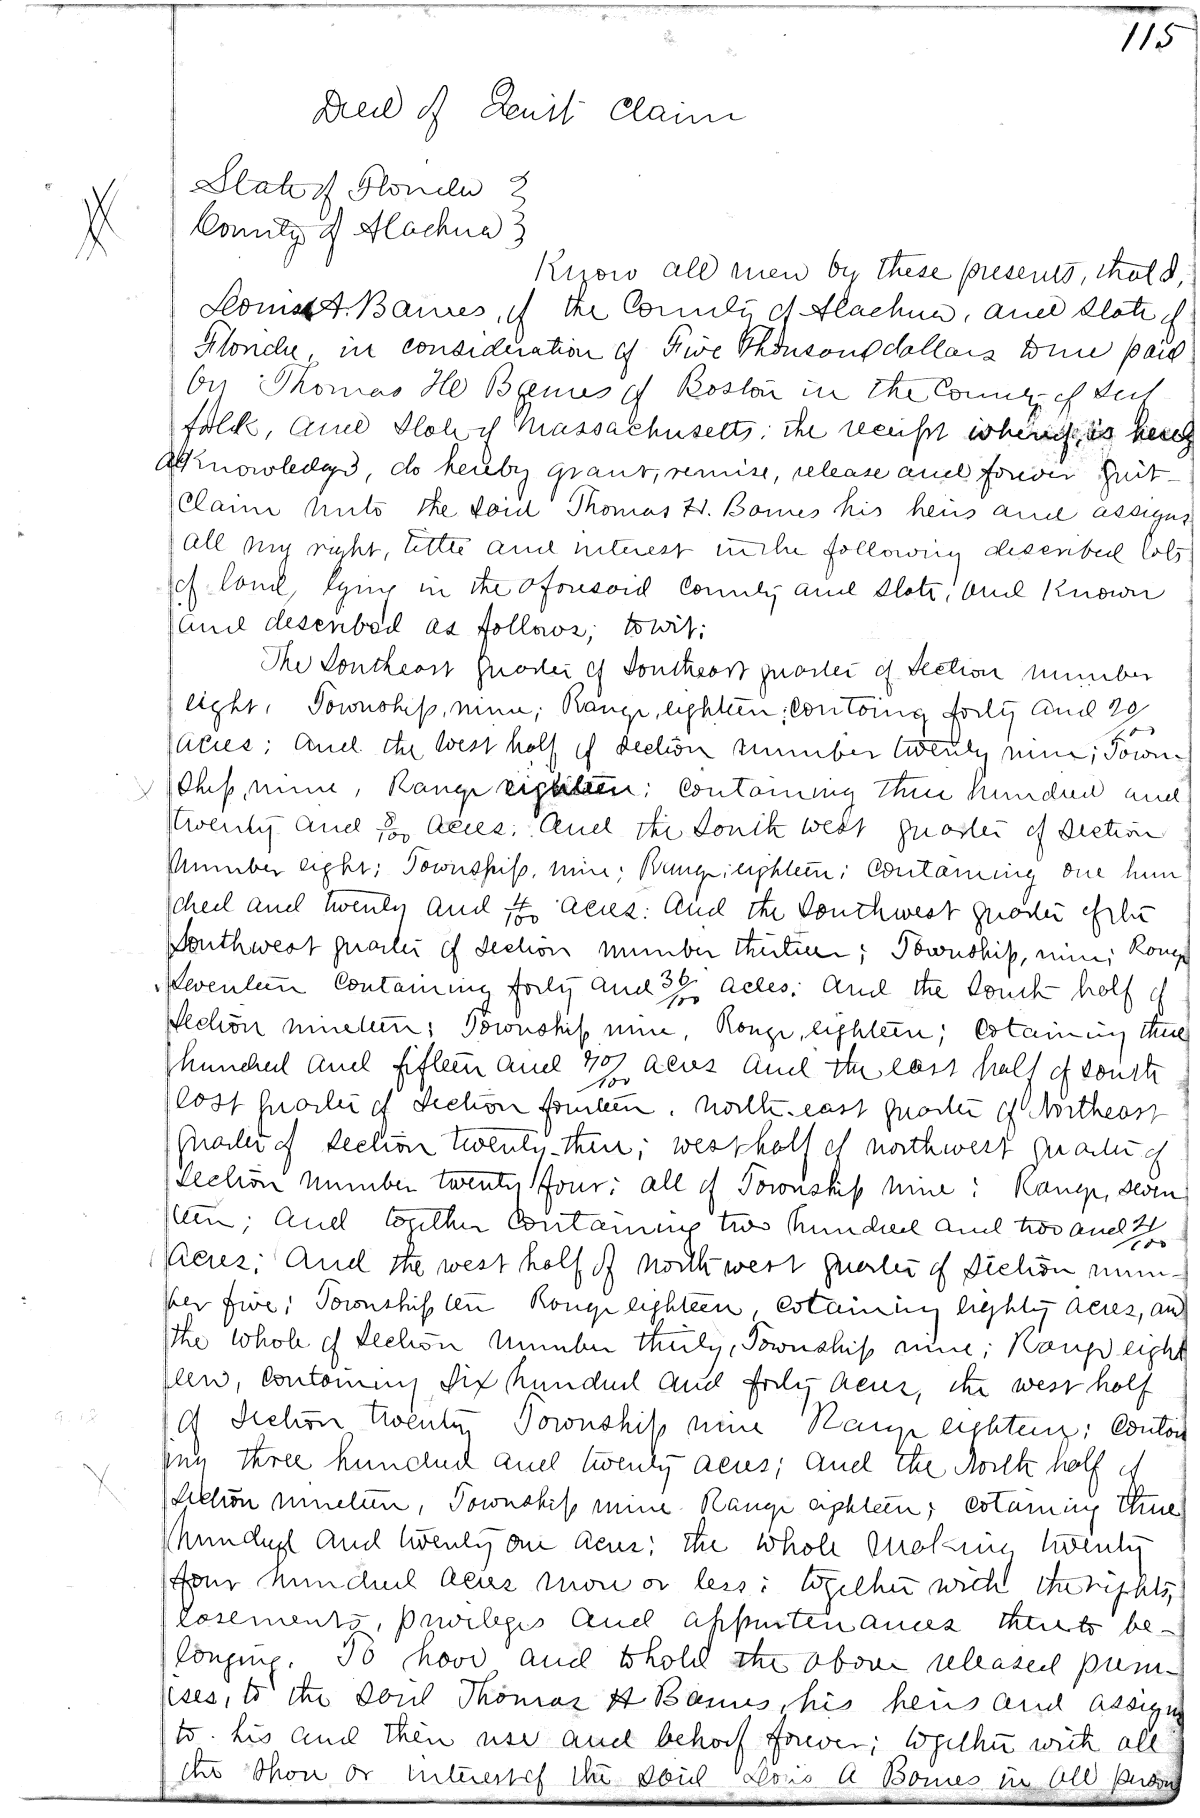 115
Deed of Quit Claim
State of Florida }
County of Alachua }
Know all men by these presents, that I,
Louis A. Barnes, of the County of Alachua, and State of
Florida, in consideration of Five Thousand dollars to me paid
by Thomas H Barnes of Boston in the County of Suf
folk, and State of Massachusetts; the receipt whereof, is hereby
acknowledged, do hereby grant, remise, release and forever Quit-
claim unto the said Thomas H. Barnes his heirs and assigns
all my right, tittle and interest in the following described lots
of land, lying in the aforesaid County and State, and Known
and described as follows; towit:
The Southeast quarter of Southeast quarter of Section number
eight, Township, nine; Range, eighteen; containg forty and 20/100
acres; and the west half of Section number twenty nine; Town-
ship, nine, Range eighteen; containing three hundred and
twenty and 8/100 acres; And the South west quarter of Section
Number eight; Township, nine; Range, eighteen; containing one hun
dred and twenty and 4/100 acres: And the Southwest quarter of the
Southwest quarter of Section number thirteen; Township, nine; Range
Seventeen containing forty and 36/100 acres; And the South half of
Section nineteen; Township nine, Range, eighteen; cotaining three
hundred and fifteen and 70/100 acres and the east half of south
east quarter of Section fourteen, north-east quarter of Northeast
quarter of Section twenty-three; west half of northwest quarter of
Section number twenty four; all of Township nine; Range, seven
teen; And together containing two hundred and two and 4/100
Acres; And the west half of north west quarter of Section num-
ber five; Township ten Range eighteen, cotaining eighty acres, and
the whole of Section number thirty, Township nine; Range eight
een, containing six hundred and forty acres, the west half
of Section twenty Township nine Range eighteen; contain
ing three hundred and twenty acres; and the North half of
Section nineteen, Township nine Range eighteen; cotaining three
hundred and twenty one acres; the whole making twenty
four hundred acres more or less; together with the rights,
easements, privileges and appurtenances thereto be-
longing. To have and tohold the above released prem-
ises, to the said Thomas H Barnes, his heirs and assigns
to his and their use and behoof forever; together with all
the share or interest of the said Louis A Barnes in all persons